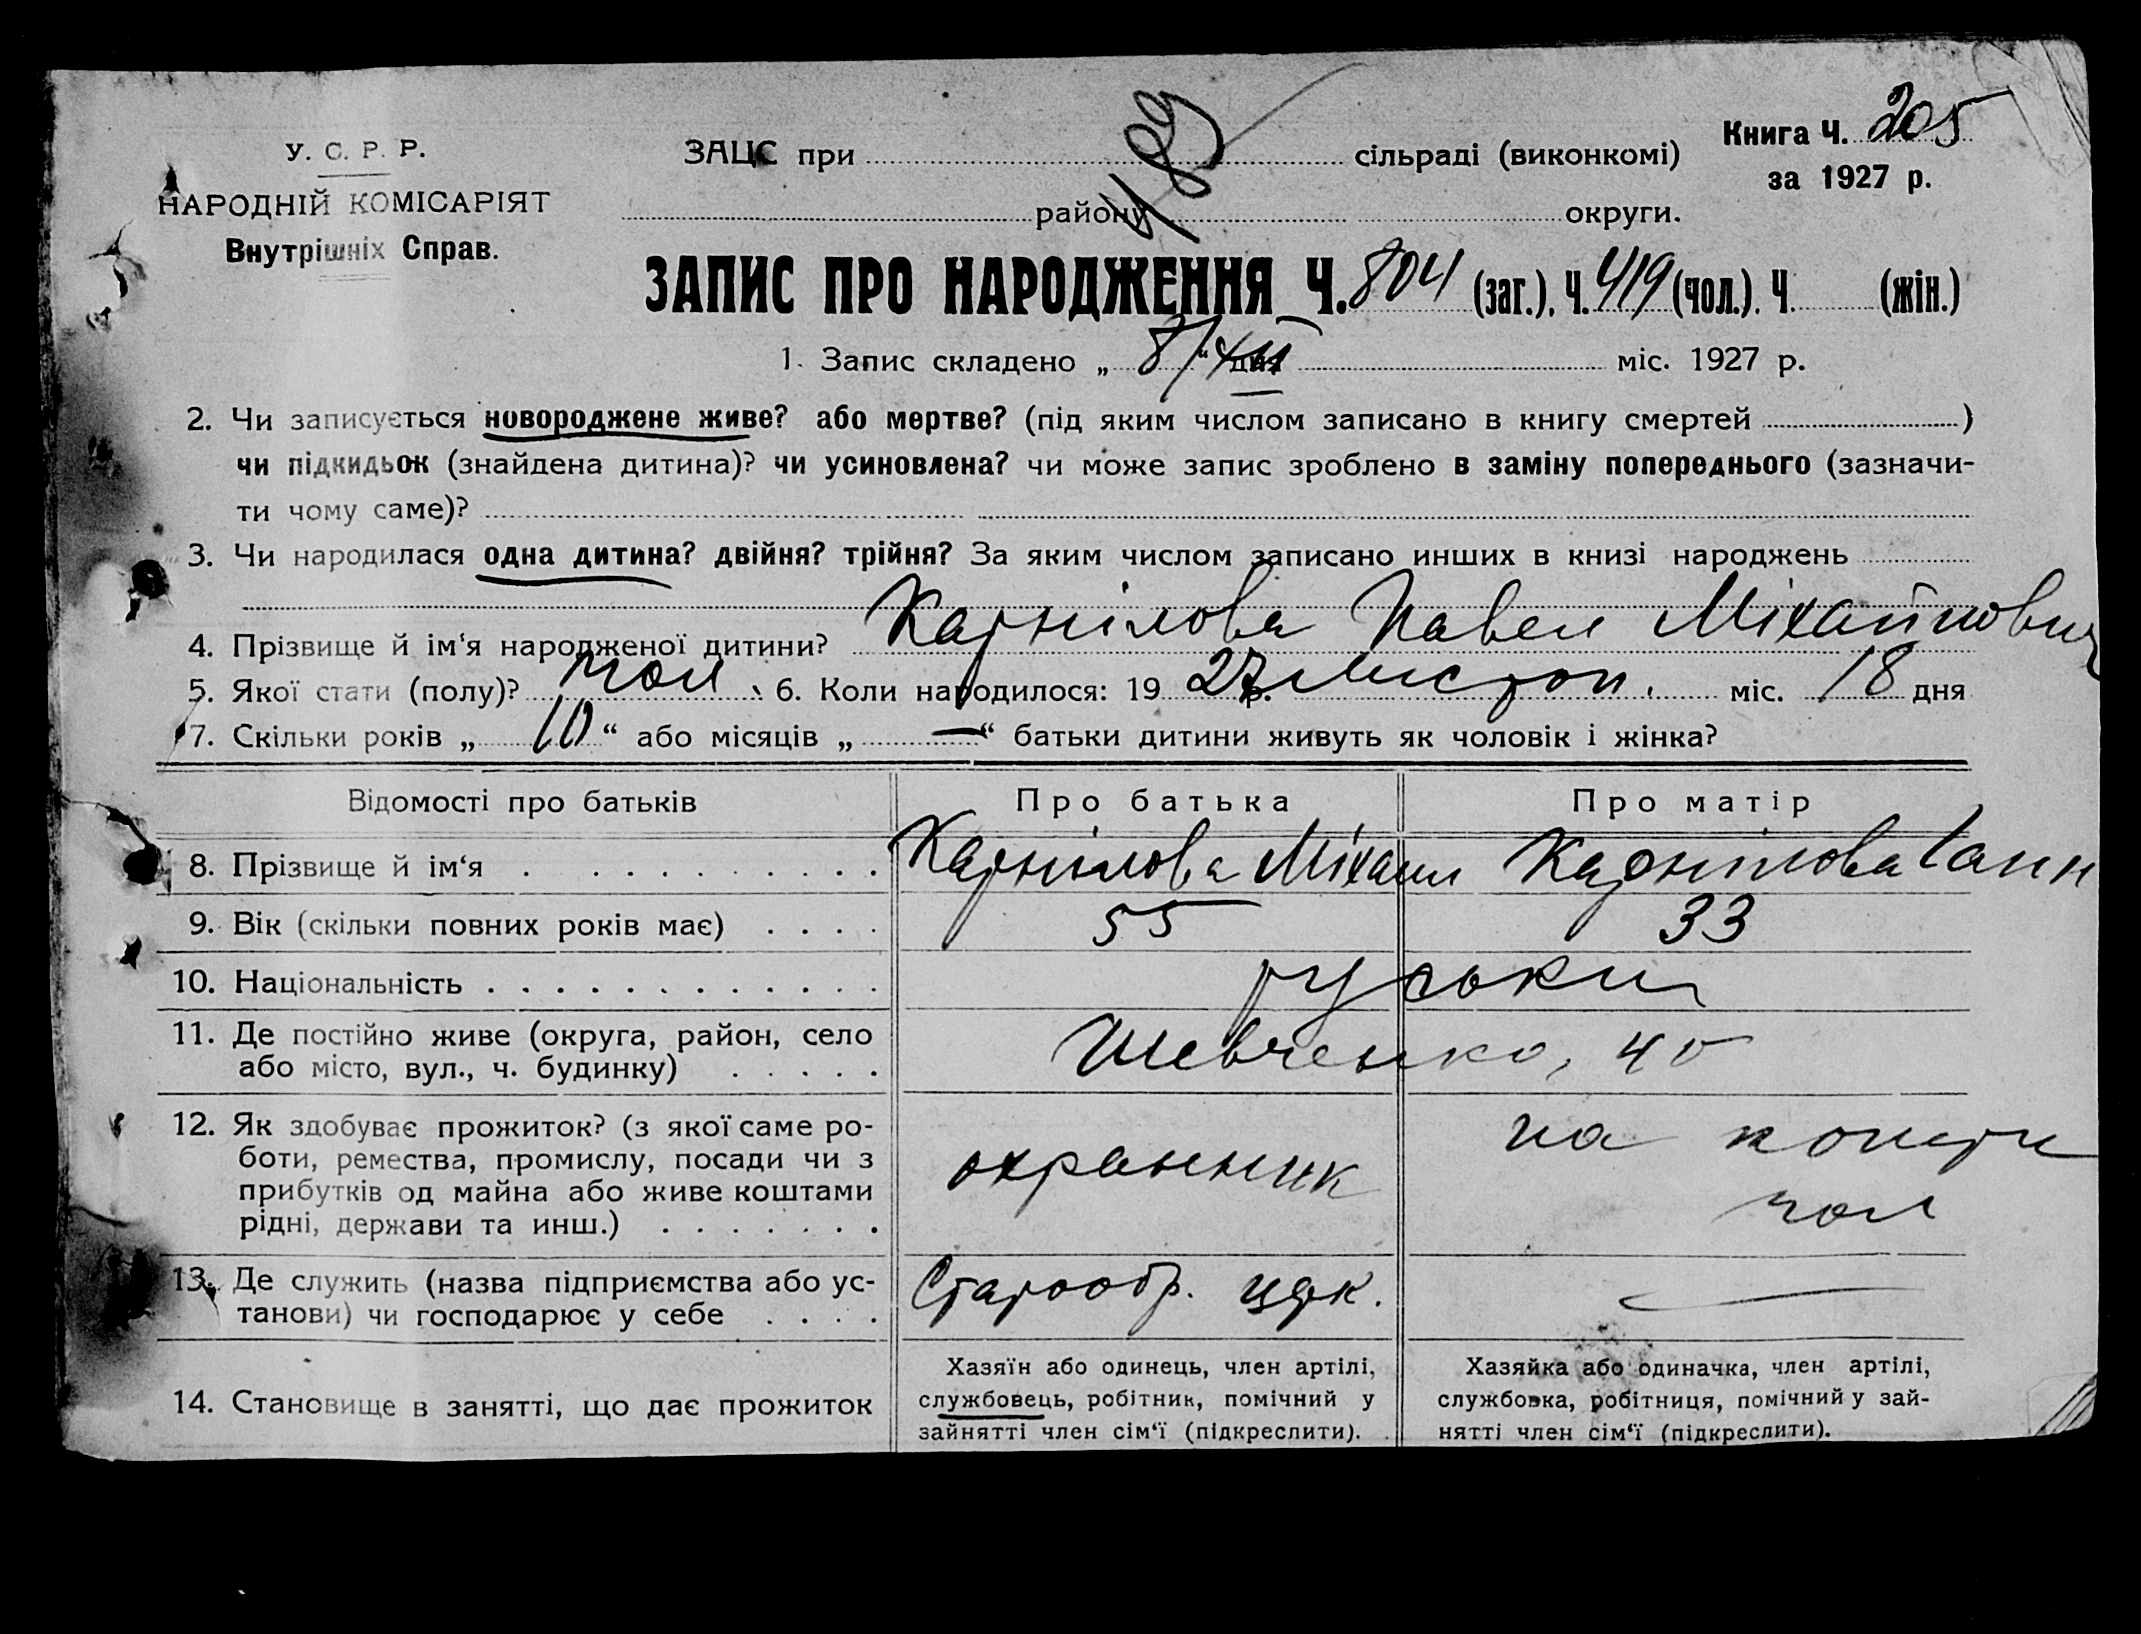 У. С. Р. Р.
НАРОДНІЙ КОМІСАРІЯТ
Внутрішніх Справ.
489
ЗАЦС при сільраді (виконкомі)
району округи.
Книга Ч. 205
за 1927 р.
ЗАПИС ПРО НАРОДЖЕННЯ Ч. 804 (заг.), Ч. 419 (чол.). Ч. (жін.)
1. Запис складено „ 8/XII “ дня міс. 1927 р.
2. Чи записується новороджене живе? або мертве? (під яким числом записано в книгу смертей )
чи підкидьок (знайдена дитина)? чи усиновлена? чи може запис зроблено в заміну попереднього (зазначи-
ти чому саме)?
3. Чи народилася одна дитина? двійня? трійня? За яким числом записано инших в книзі народжень
4. Прізвище й ім‘я народженої дитини? Карнілова Павел Міхайлович
5. Якої стати (полу)? чол. 6. Коли народилося: 19 27 р. листоп. міс. 18 дня
7. Скільки років „ 10 “ або місяців „ — “ батьки дитини живуть як чоловік і жінка?
Відомості про батьків Про батька Про матір
8. Прізвище й ім‘я Карнілова Міхаил Карнілова Ганн
9. Вік (скільки повних років має) 55 33
10. Національність руськи
11. Де постійно живе (округа, район, село
або місто, вул., ч. будинку) Шевченко, 40
12. Як здобуває прожиток? (з якої саме ро-
боти, ремества, промислу, посади чи з
прибутків од майна або живе коштами
рідні, держави та инш.)
охранник
на
чол
13. Де служить (назва підприємства або ус-
танови) чи господарює у себе
Старообр. —
14. Становище в занятті, що дає прожиток
Хазяїн або одинець, член артілі,
службовець, робітник, помічний у
зайнятті член сім‘ї (підкреслити).
Хазяйка або одиначка, член артілі,
службовка, робітниця, помічний у зай-
нятті член сім‘ї (підкреслити).